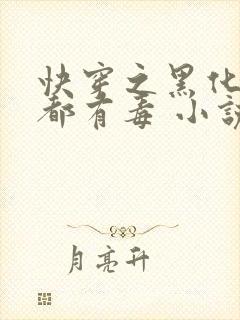 快穿之黑化
都有毒 小說
月亮升